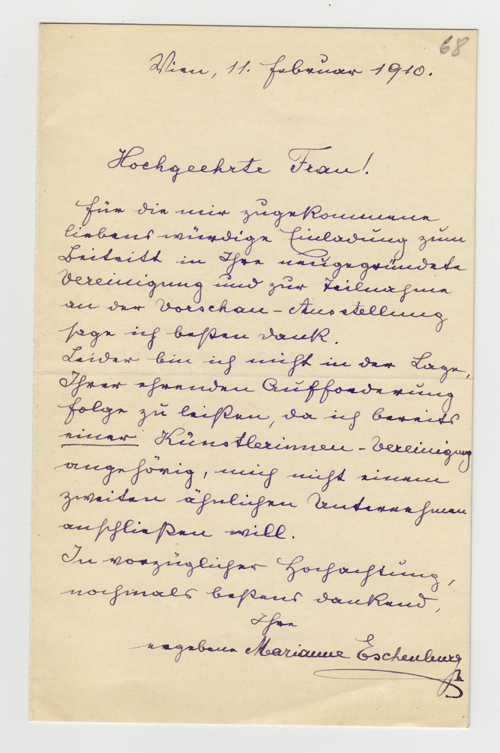 68
Wien, 11. Februar 1910.
Hochgeehrte Frau!
Für die mir zugekommene
liebenswürdige Einladung zum
Beitritt in Ihre neugegründete
Vereinigung und zur Teilnahme
an der Vorschau-Ausstellung
sage ich besten Dank.
Leider bin ich nicht in der Lage,
Ihrer ehrenden Aufforderung
Folge zu leisten, da ich bereits
einer Künstlerinnen-Vereinigung
angehörig, mich nicht einem
zweiten ähnlichen Unternehmen
anschließen will.
In vorzüglicher Hochachtung,
nochmals bestens dankend,
Ihre
ergebene Marianne Eschenburg